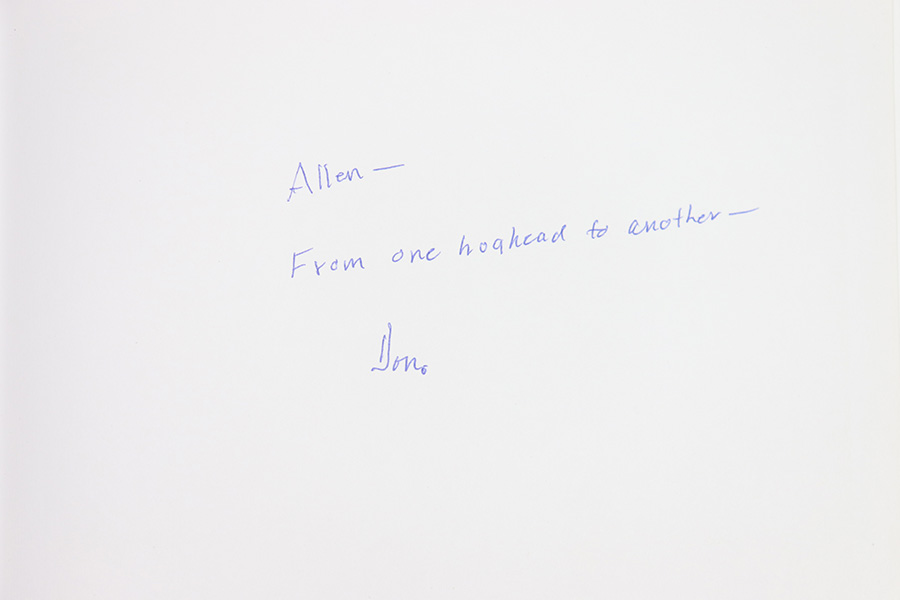 Allen —
From one hoghead to another —
Don.